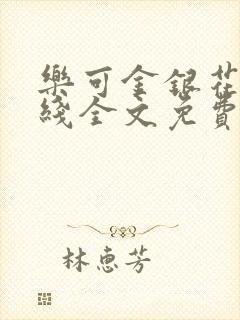 樂可金銀花
綫全文免費
林惠芳